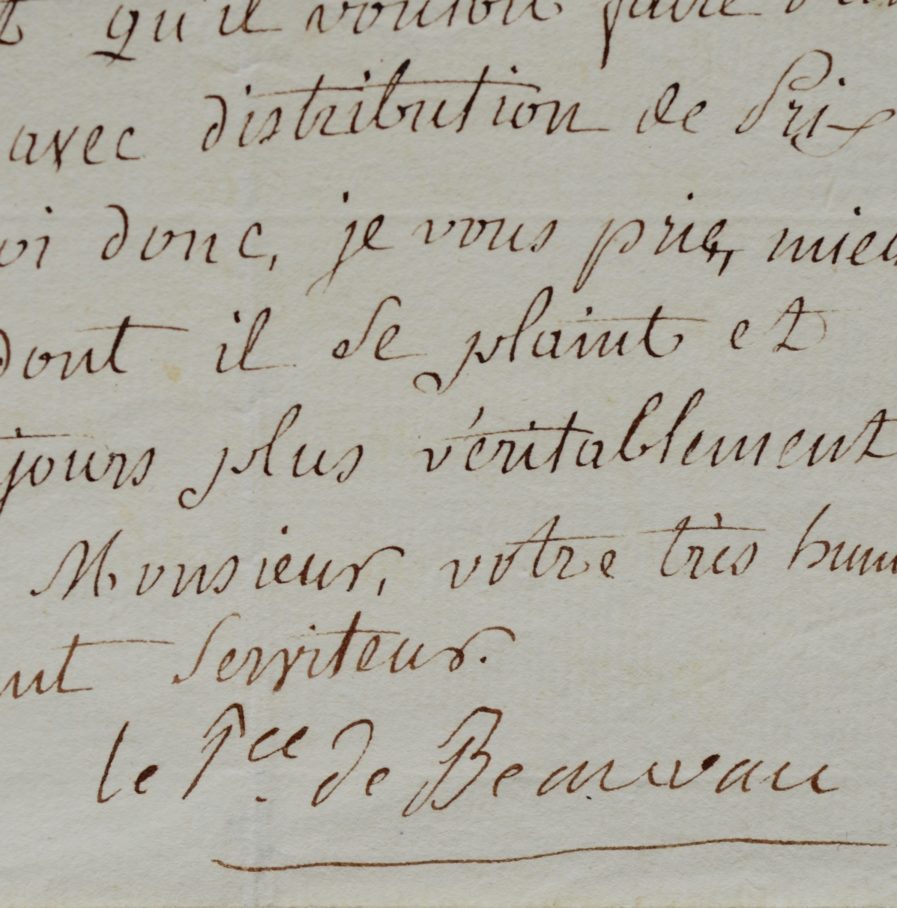 qu'il vouloit faire
avec distribution de Prix
oi donc, je vous prie, mieu
dont il se plaint et
jours plus véritablement
Monsieur, votre très hum
nt Serviteur.
le Pce de Beauvau